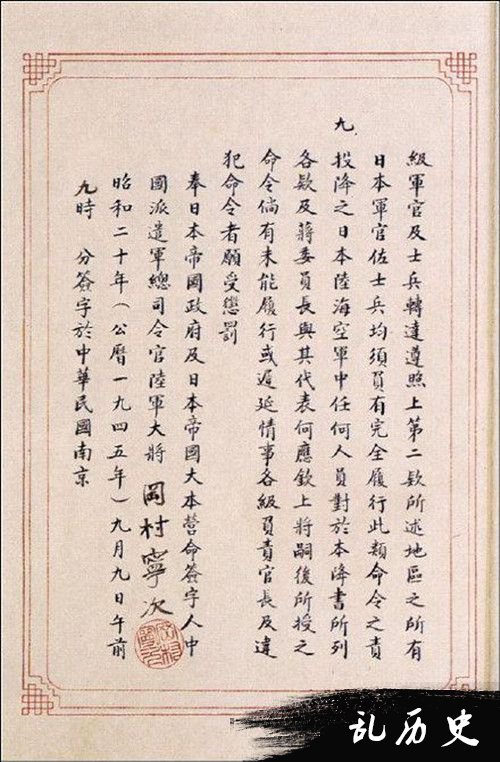 級軍官及士兵轉達遵照上第二欵所述地區之所有
日本軍官佐士兵均須負有完全履行此類命令之責
九
投降之日本陸海空軍中任何人員對於本降書所列
各欵及蔣委員長與其代表何應欽上將嗣後所授之
命令倘有未能履行或遲延情事各級負責官長及違
犯命令者願受懲罰
奉日本帝國政府及日本帝國大本營命簽字人中
國派遣軍總司令官陸軍大將 岡村寧次
昭和二十年(公曆一九四五年)九月九日午前
九時 分簽字於中華民國南京
岡村寧次
乱历史